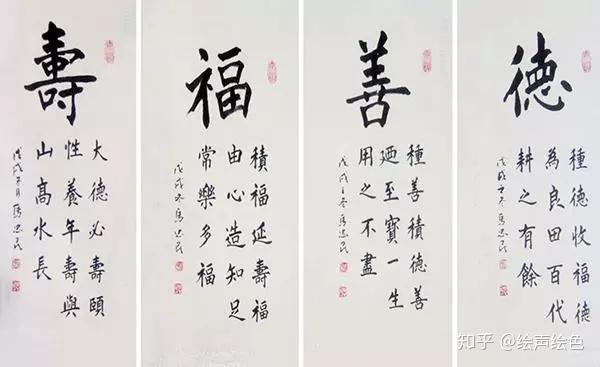 德
種德收福德
為良田百代
耕之有餘
善
種善積德善
廼至寶一生
用之不盡
福
積福延壽福
由心造知足
常樂多福
戊戌冬馬忠民
壽
大德必壽頤
性養年壽與
山高水長
知乎 @绘声绘色